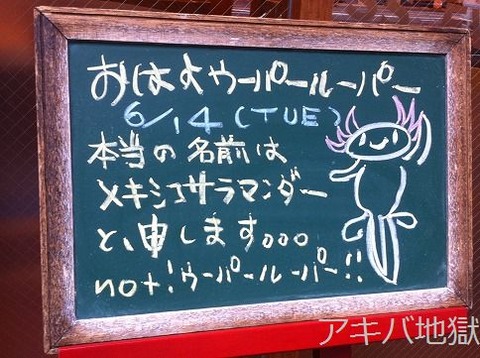 おはよウーパールーパー
6/14(TUE)
本当の名前は
メキシコサラマンダー
と、申します。。。
not!ウーパールーパー!!
アキバ地獄